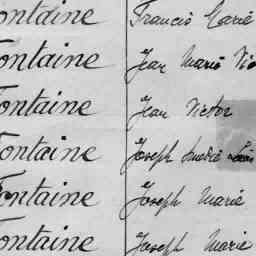 ontaine Francis Marie
ontaine Jean Marie Vic
ontaine Jean Victor
ontaine Joseph André Louis
Fontaine Joseph Marie
ontaine Joseph Marie